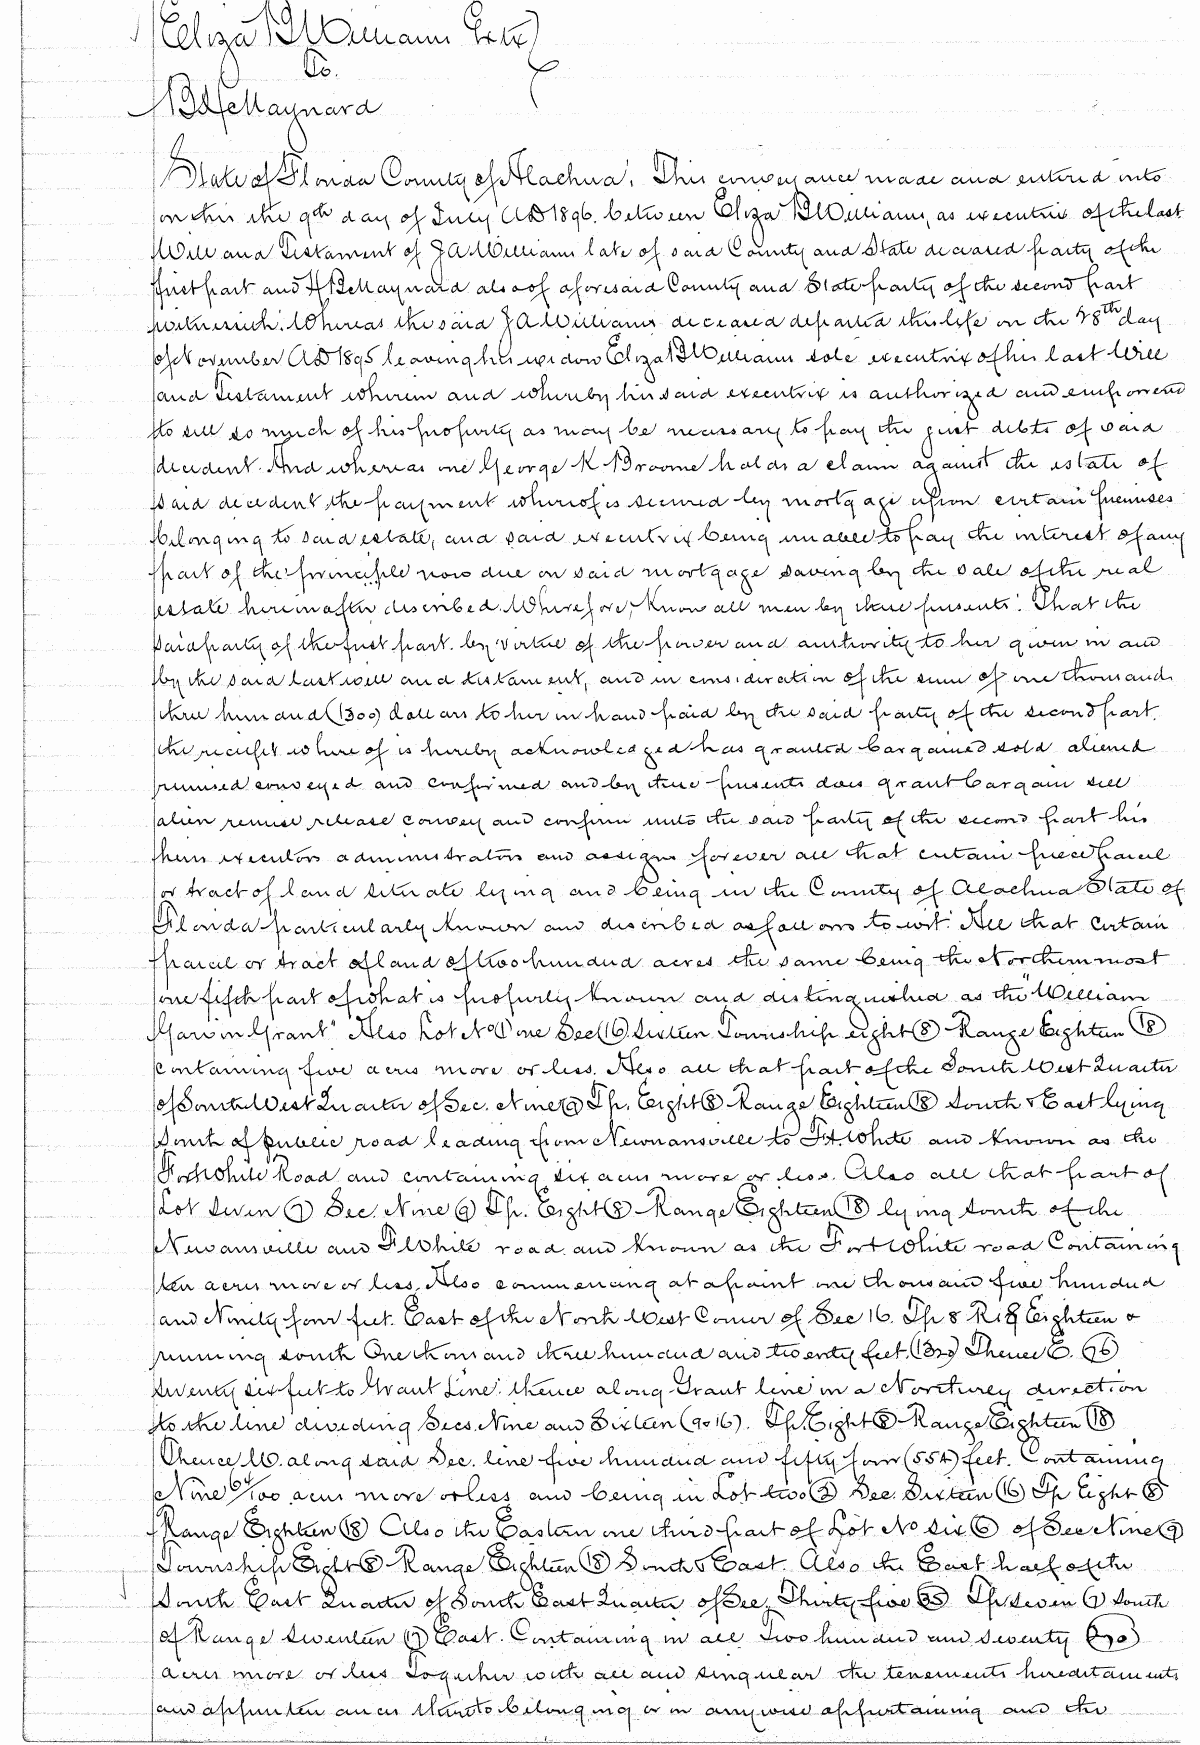 Eliza B Williams Extx
To.
H B McMaynard
State of Florida County of Alachua. This conveyance made and entered into
on this the 9th day of July AD 1896. between Eliza B Williams, as executrix of the last
Will and Testament of J A Williams late of said County and State deceased party of the
first part and H B McMaynard also of aforesaid County and State party of the second part
witnesseth: Whereas the said J A Williams deceased departed this life on the 28th day
of November AD 1895 leaving his widow Eliza B Williams sole executrix of his last Will
and Testament wherein and whereby his said executrix is authorized and empowered
to sell so much of his property as may be necessary to pay the just debts of said
decedent. And whereas one George K Broome holds a claim against the estate of
said decedent the payment whereof is secured by mortgage upon certain premises
belonging to said estate, and said executrix being unable to pay the interest of any
part of the principle now due on said mortgage saving by the sale of the real
estate hereinafter described. Wherefore, Know all men by these presents: That the
said party of the first part. by virtue of the power and authority to her given in and
by the said last will and testament, and in consideration of the sum of one thousand
three hundred (1300) dollars to her in hand paid by the said party of the second part.
the receipt where of is hereby acknowledged has granted bargained sold aliened
remised conveyed and confirmed and by these presents does grant bargain sell
alien remise release convey and confirm unto the said party of the second part his
heirs executors administrators and assigns forever all that certain piece parcel
or tract of land situate lying and being in the County of Alachua State of
Florida particularly known and described as follows to wit: All that certain
parcel or tract of land of two hundred acres the same being the Northernmost
one fifth part of what is properly known and distinguished as the "William
Garvin Grant" Also Lot No 1 one Sec (16) Sixteen Township eight (8) Range Eighteen (18)
containing five acres more or less. Also all that part of the South West Quarter
of South West Quarter of Sec. Nine (9) Tp. Eight (8) Range Eighteen (18) South & East lying
South of public road leading from Newnansville to Ft. White and known as the
Fort White Road and containing six acres more or less. Also all that part of
Lot seven (7) Sec. Nine (9) Tp. Eight (8) Range Eighteen (18) lying south of the
Newansville and Ft White road and known as the Fort White road Containing
ten acres more or less, Also commencing at a point one thousand five hundred
and Ninety four feet. East of the North West Corner of Sec 16. Tp 8 R18 Eighteen &
running south One thousand three hundred and twenty feet. (1320) Thence E. (76)
seventy six feet to Grant Line. thence along Grant line in a Northerly direction
to the line dividing Secs. Nine and Sixteen (9 & 16). Tp. Eight (8) Range Eighteen (18)
Thence W. along said Sec. line five hundred and fifty four (554) feet. Containing
Nine 64/100 acres more or less and being in Lot two (2) Sec. Sixteen (16) Tp Eight (8)
Range Eighteen (18) Also the Eastern one third part of Lot No six (6) of Sec Nine (9)
Township Eight (8) Range Eighteen (18) South & East. Also the East half of the
South East Quarter of South East Quarter of Sec. Thirty five (35) Tp seven (7) South
of Range seventeen (17) East. Containing in all Two hundred and seventy (270)
acres more or less Together with all and singular the tenements hereditaments
and appurtenances thereto belonging or in anywise appurtaining and the